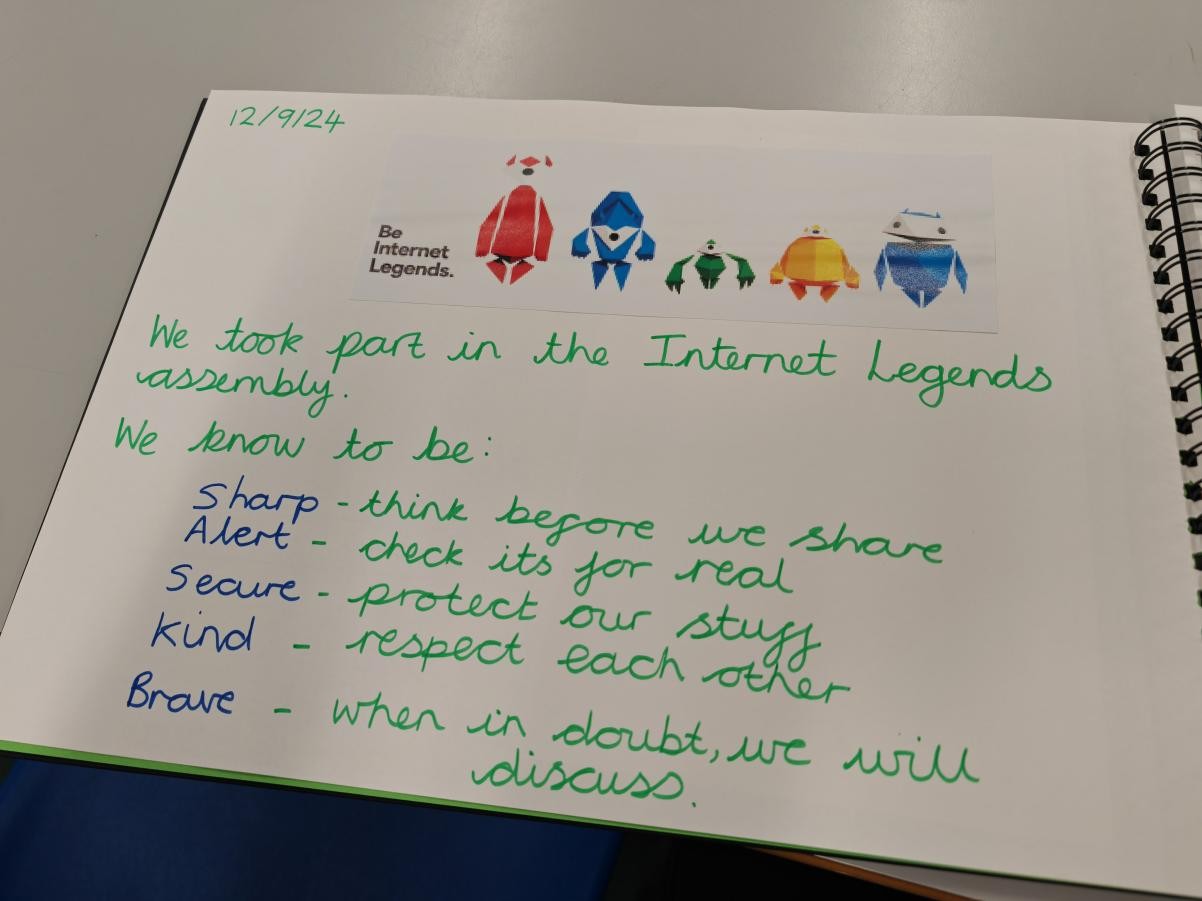 12/9/24
Be
Internet
Legends.
We took part in the Internet Legends
assembly.
We know to be:
Sharp - think before we share
Alert - check its for real
Secure - protect our stuff
Kind - respect each other
Brave - when in doubt, we will
discuss.